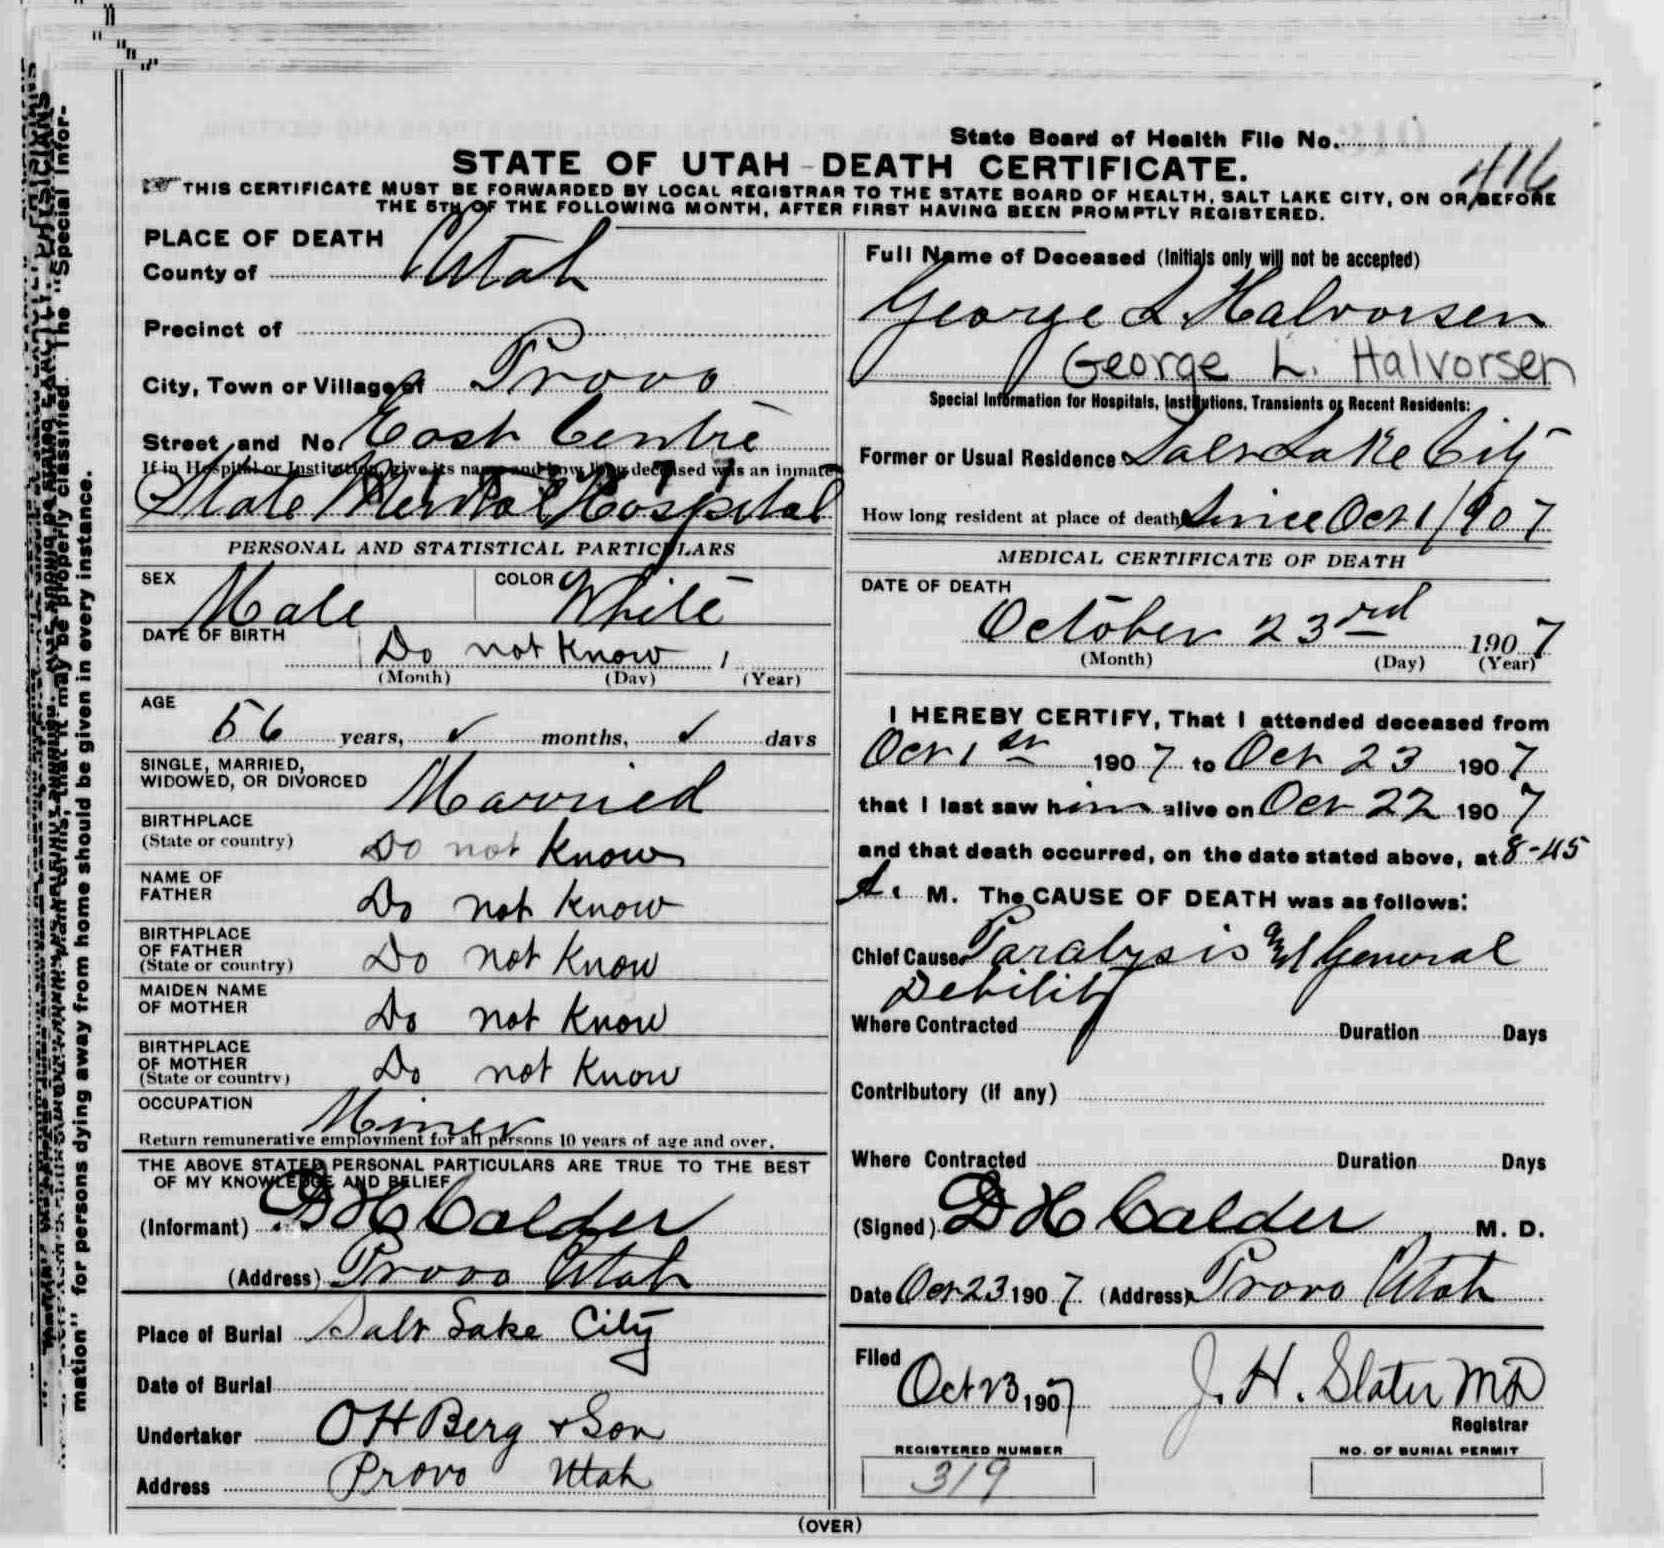 State Board of Health File No. 416
STATE OF UTAH - DEATH CERTIFICATE.
THIS CERTIFICATE MUST BE FORWARDED BY LOCAL REGISTRAR TO THE STATE BOARD OF HEALTH, SALT LAKE CITY, ON OR BEFORE
THE 5TH OF THE FOLLOWING MONTH, AFTER FIRST HAVING BEEN PROMPTLY REGISTERED.
PLACE OF DEATH
County of Utah
Precinct of
City, Town or Village of Provo
Street and No. East Centre
If in Hospital or Institution, give its name and how long deceased was an inmate
State Mental Hospital
PERSONAL AND STATISTICAL PARTICULARS
SEX Male COLOR White
DATE OF BIRTH Do not Know
(Month) (Day) (Year)
AGE
56 years, ✓ months, ✓ days
SINGLE, MARRIED,
WIDOWED, OR DIVORCED Married
BIRTHPLACE
(State or country) Do not Know
NAME OF
FATHER Do not Know
BIRTHPLACE
OF FATHER
(State or country) Do not Know
MAIDEN NAME
OF MOTHER Do not Know
BIRTHPLACE
OF MOTHER
(State or country) Do not Know
OCCUPATION Miner
Return remunerative employment for all persons 10 years of age and over.
THE ABOVE STATED PERSONAL PARTICULARS ARE TRUE TO THE BEST
OF MY KNOWLEDGE AND BELIEF
(Informant) D H Calder
(Address) Provo Utah
Place of Burial Salt Lake City
Date of Burial
Undertaker O H Berg & Son
Address Provo Utah
Full Name of Deceased (Initials only will not be accepted)
George L Halvorsen
George L. Halvorsen
Special Information for Hospitals, Institutions, Transients or Recent Residents:
Former or Usual Residence Salt Lake City
How long resident at place of death Since Oct 1/1907
MEDICAL CERTIFICATE OF DEATH
DATE OF DEATH
October 23rd 1907
(Month) (Day) (Year)
I HEREBY CERTIFY, That I attended deceased from
Oct 1st 1907 to Oct 23 1907
that I last saw him alive on Oct 22 1907
and that death occurred, on the date stated above, at 8-45
A. M. The CAUSE OF DEATH was as follows:
Chief Cause Paralysis and General
Debility
Where Contracted Duration Days
Contributory (if any)
Where Contracted Duration Days
(Signed) D H Calder M. D.
Date Oct 23 1907 (Address) Provo Utah
Filed
Oct 23 1907 J. H. Slater MD
Registrar
REGISTERED NUMBER NO. OF BURIAL PERMIT
319
(OVER)
classified. The "Special Infor-
mation" for persons dying away from home should be given in every instance.